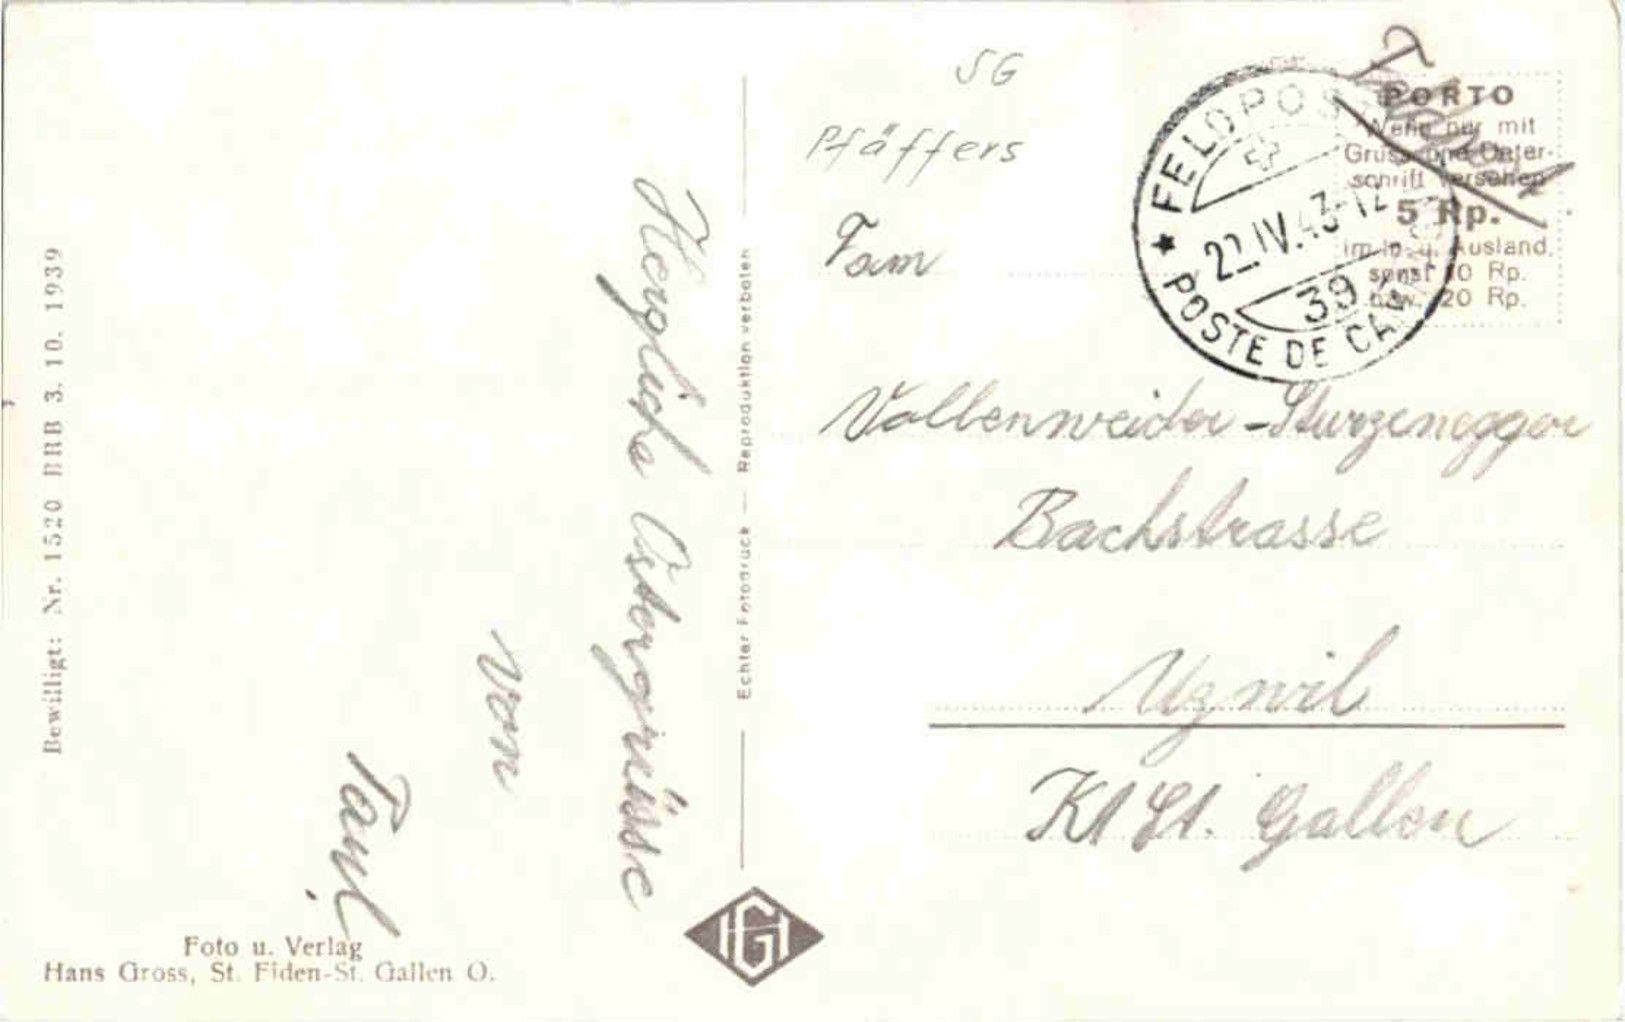 Bewilligt: Nr. 1520 BRB 3. 10. 1939
Herzliche Ostergrüsse
von
Paul
Foto u. Verlag
Hans Gross, St. Fiden-St. Gallen O.
Echter Fotodruck — Reproduktion verboten
HG
SG
Pfäffers
PORTO
Wenn nur mit
Gruss und Unter-
schrift versehen
5 Rp.
im In- u. Ausland,
sonst 10 Rp.
bzw. 20 Rp.
FELDPOST
22.IV.43-12
39
POSTE DE CAM
Fam
Vollenweider-Sturzenegger
Bachstrasse
Uzwil
Kt St. Gallen